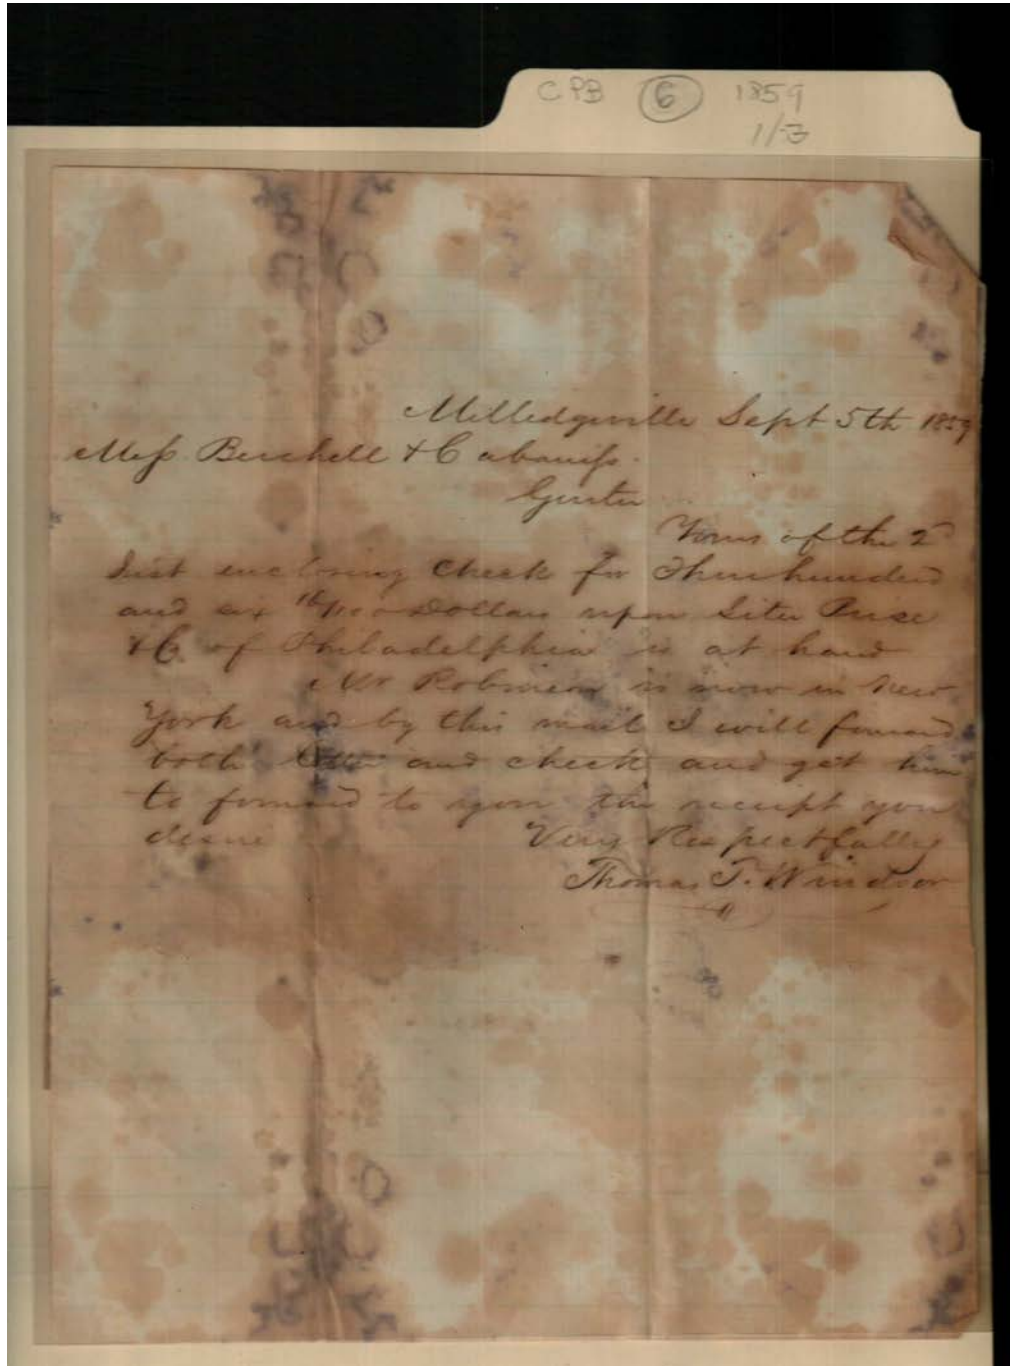 CPB 6 1859
1/3
Milledgeville Sept 5th 1859
Mess. Burchell & Cabaniss.
Gents
Yours of the 2d
Inst enclosing Check for Three hundred
and six 16/100 Dollars upon Price
& Co of Philadelphia is at hand
Mr Robinson is now in New
York and by this mail I will forward
both letter and check and get him
to forward to you the receipt you
desire Very Respectfully
Thomas T. Windsor